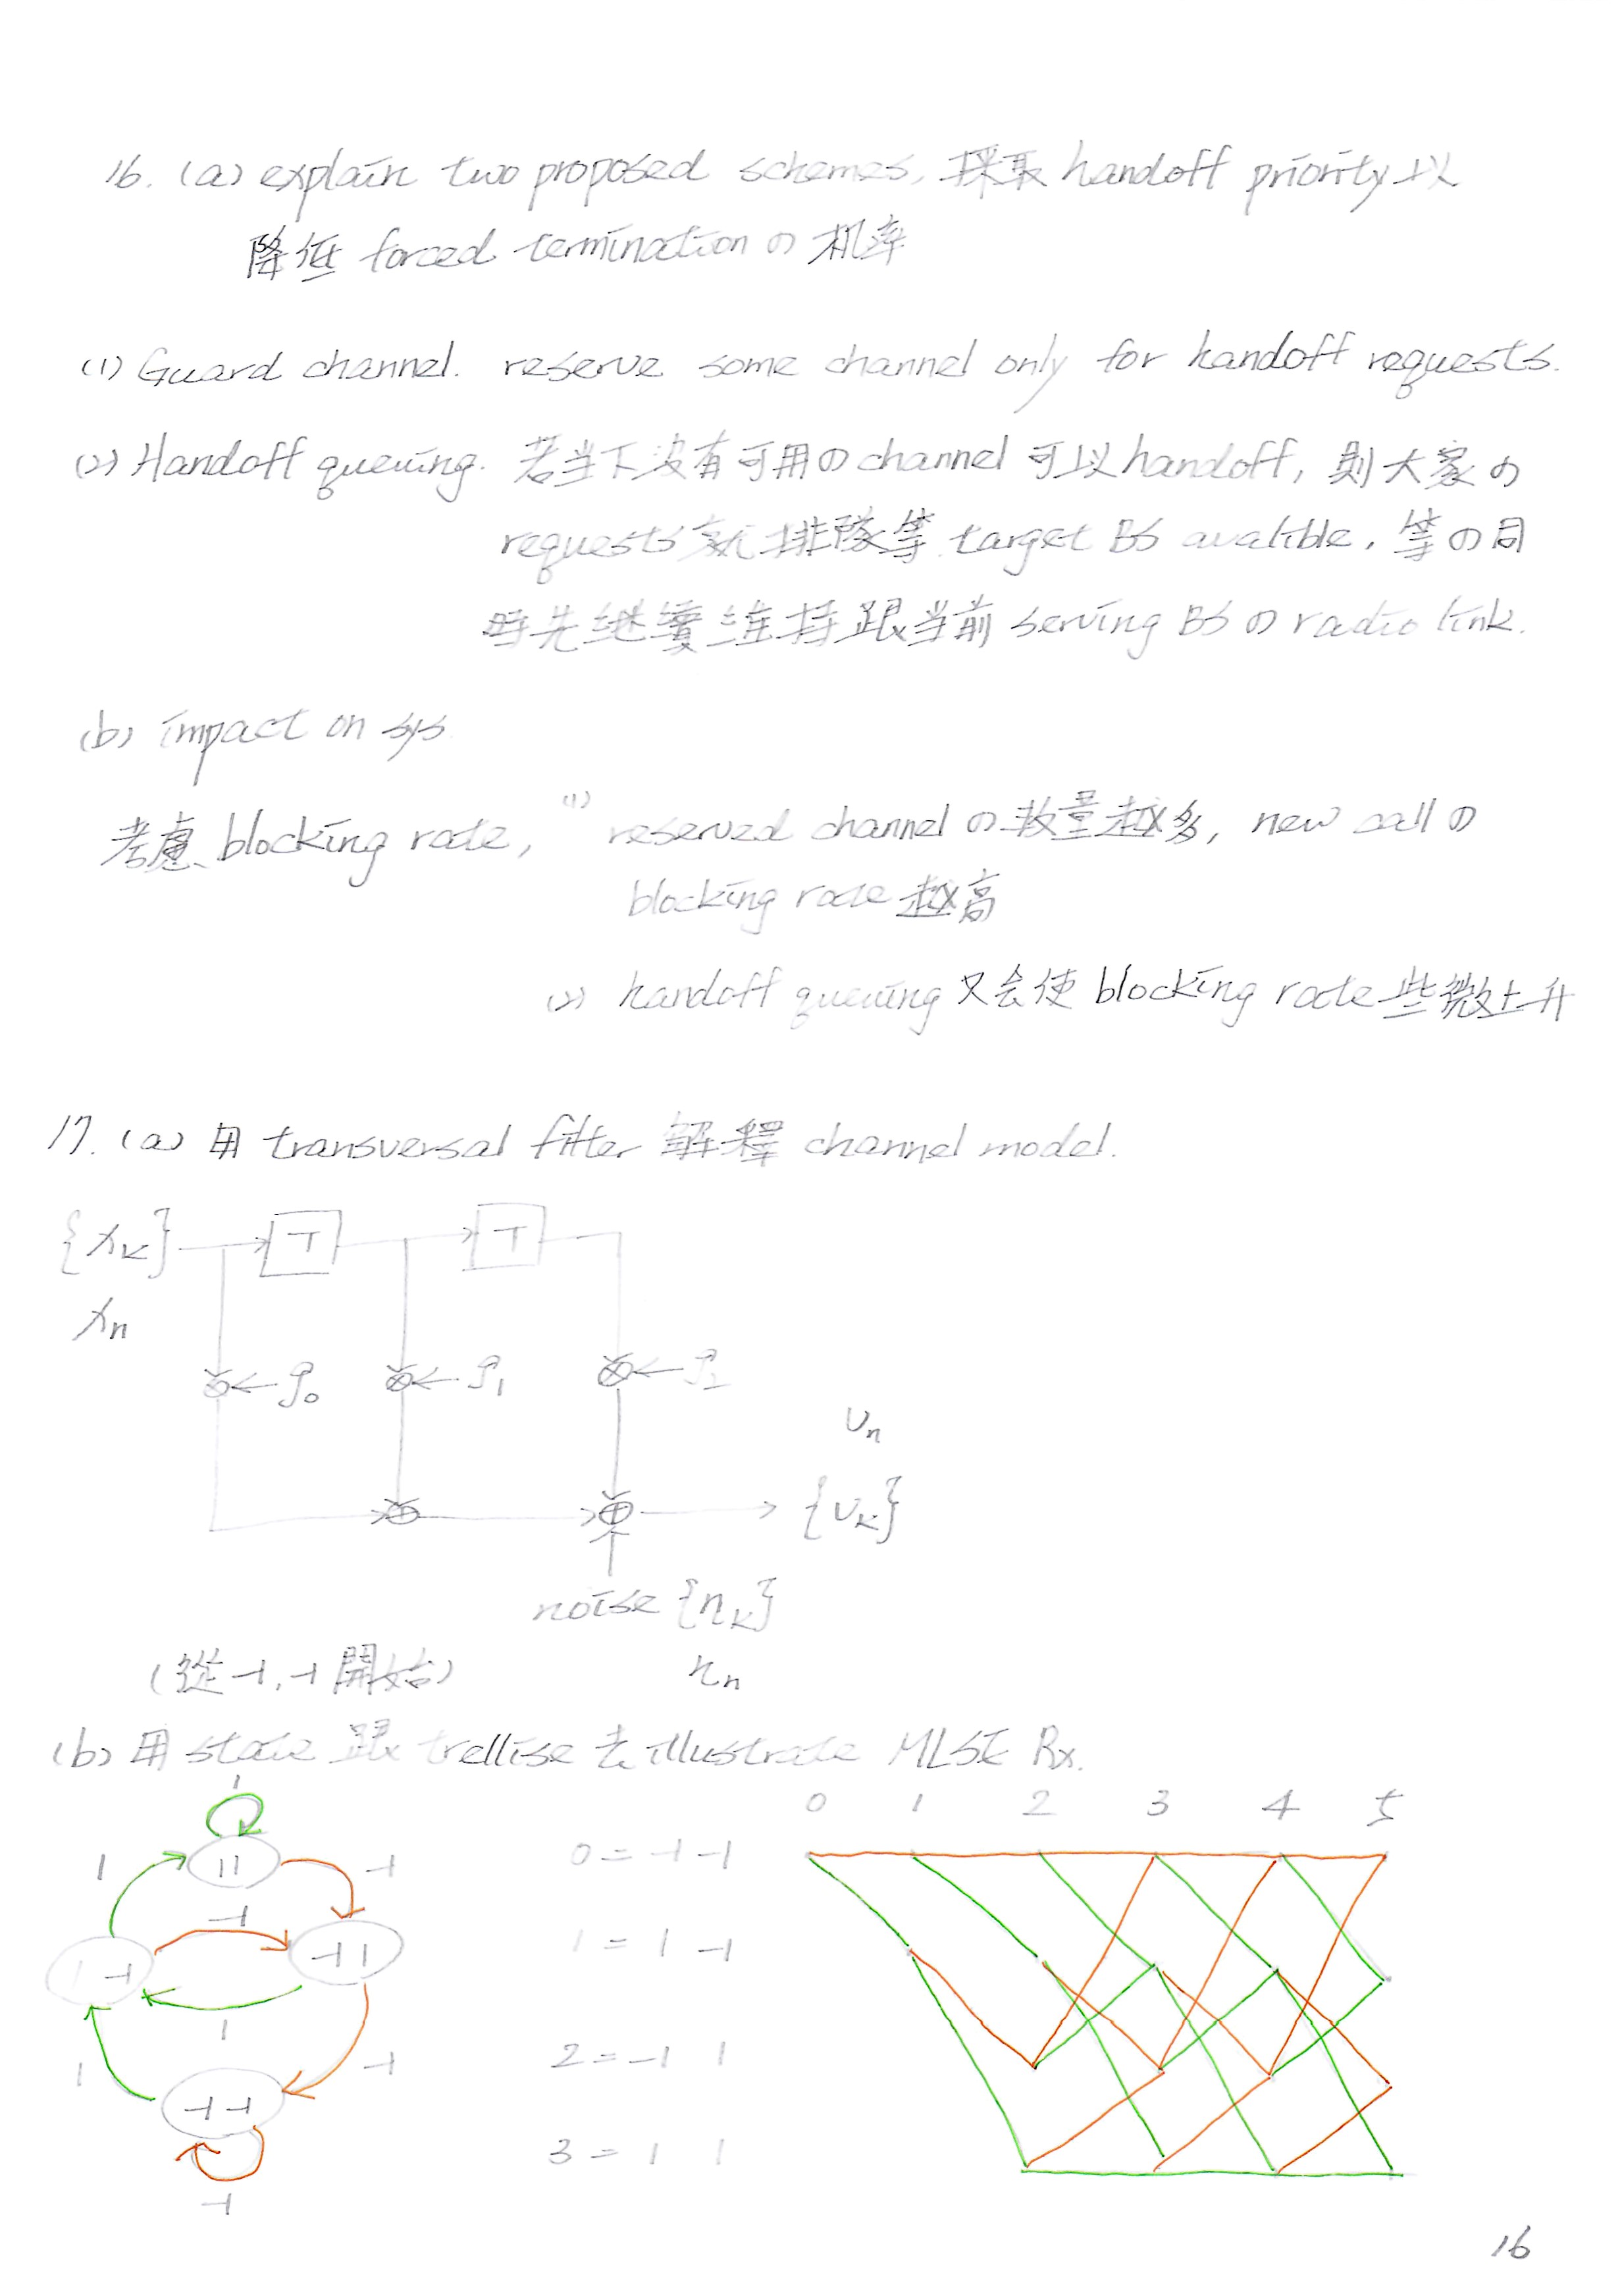 16. (a) explain two proposed schemes, 採取 handoff priority 以
降低 forced termination の 机率
(1) Guard channel. reserve some channel only for handoff requests.
(2) Handoff queuing. 若当下没有可用の channel 可以 handoff, 則大家の
requests 就排隊等 target BS avalible, 等の同
時先继續維持跟当前 serving BS の radio link.
(b) impact on sys.
考慮 blocking rate, (1) reserved channel の数量越多, new call の
blocking rate 越高
(2) handoff queuing 又会使 blocking rate 些微上升
17. (a) 用 transversal filter 解釋 channel model.
{xk} T T
xn
f0 f1 f2
υn
{υk}
noise {ηk}
ηn
(從 -1, -1 開始)
(b) 用 state 跟 trellise 去 illustrate MLSE Rx.
0 1 2 3 4 5
1
1 11 -1
0 = -1 -1
-1
1 -1 -1 1
1 = 1 -1
1
1 -1
2 = -1 1
-1 -1
3 = 1 1
-1
16